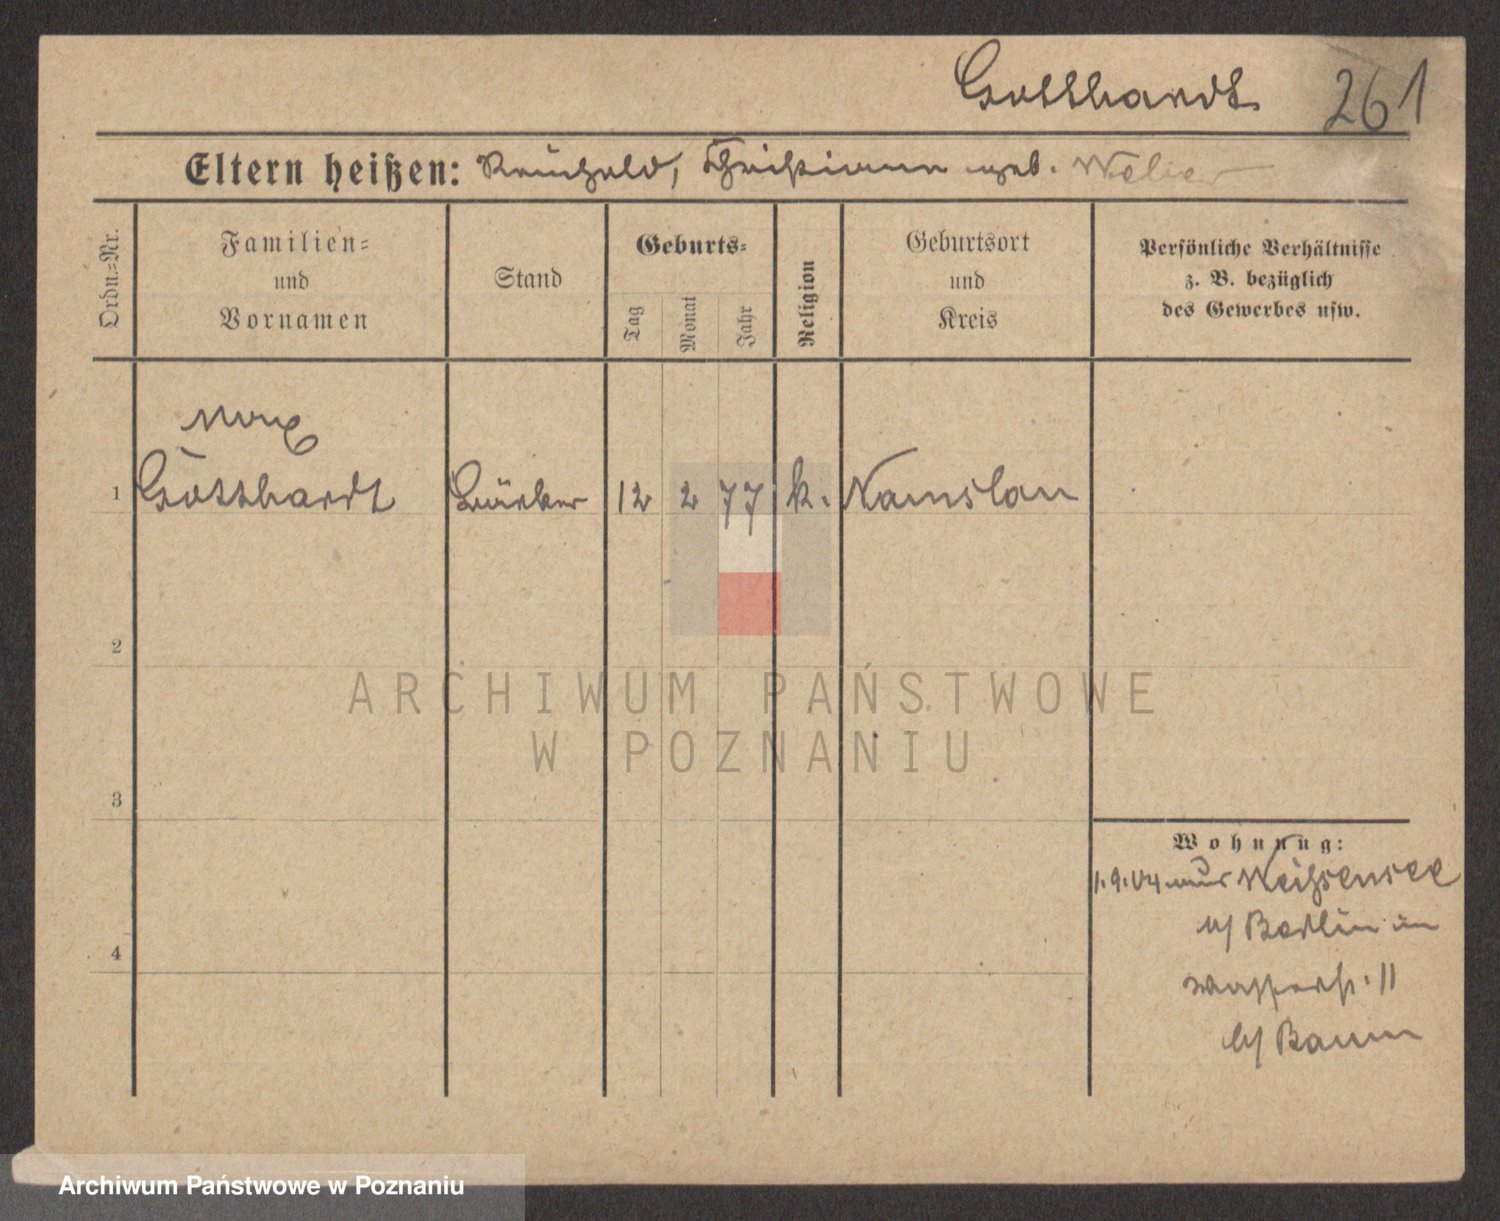 Gotthardt 261
Eltern heißen: Reinhold, Christiane geb. Welier
Ordn.=Nr.
Familien=
und
Vornamen
Stand
Geburts=
Tag
Monat
Jahr
Religion
Geburtsort
und
Kreis
Persönliche Verhältnisse
z. B. bezüglich
des Gewerbes usw.
Max
1 Gotthardt 12 2 77 k. Namslau
2
3
4
Wohnung:
1.9.04 aus Weißensee
b/ Berlin in
Wasserst. 11
b/ Baum
ARCHIWUM PAŃSTWOWE
W POZNANIU
Archiwum Państwowe w Poznaniu